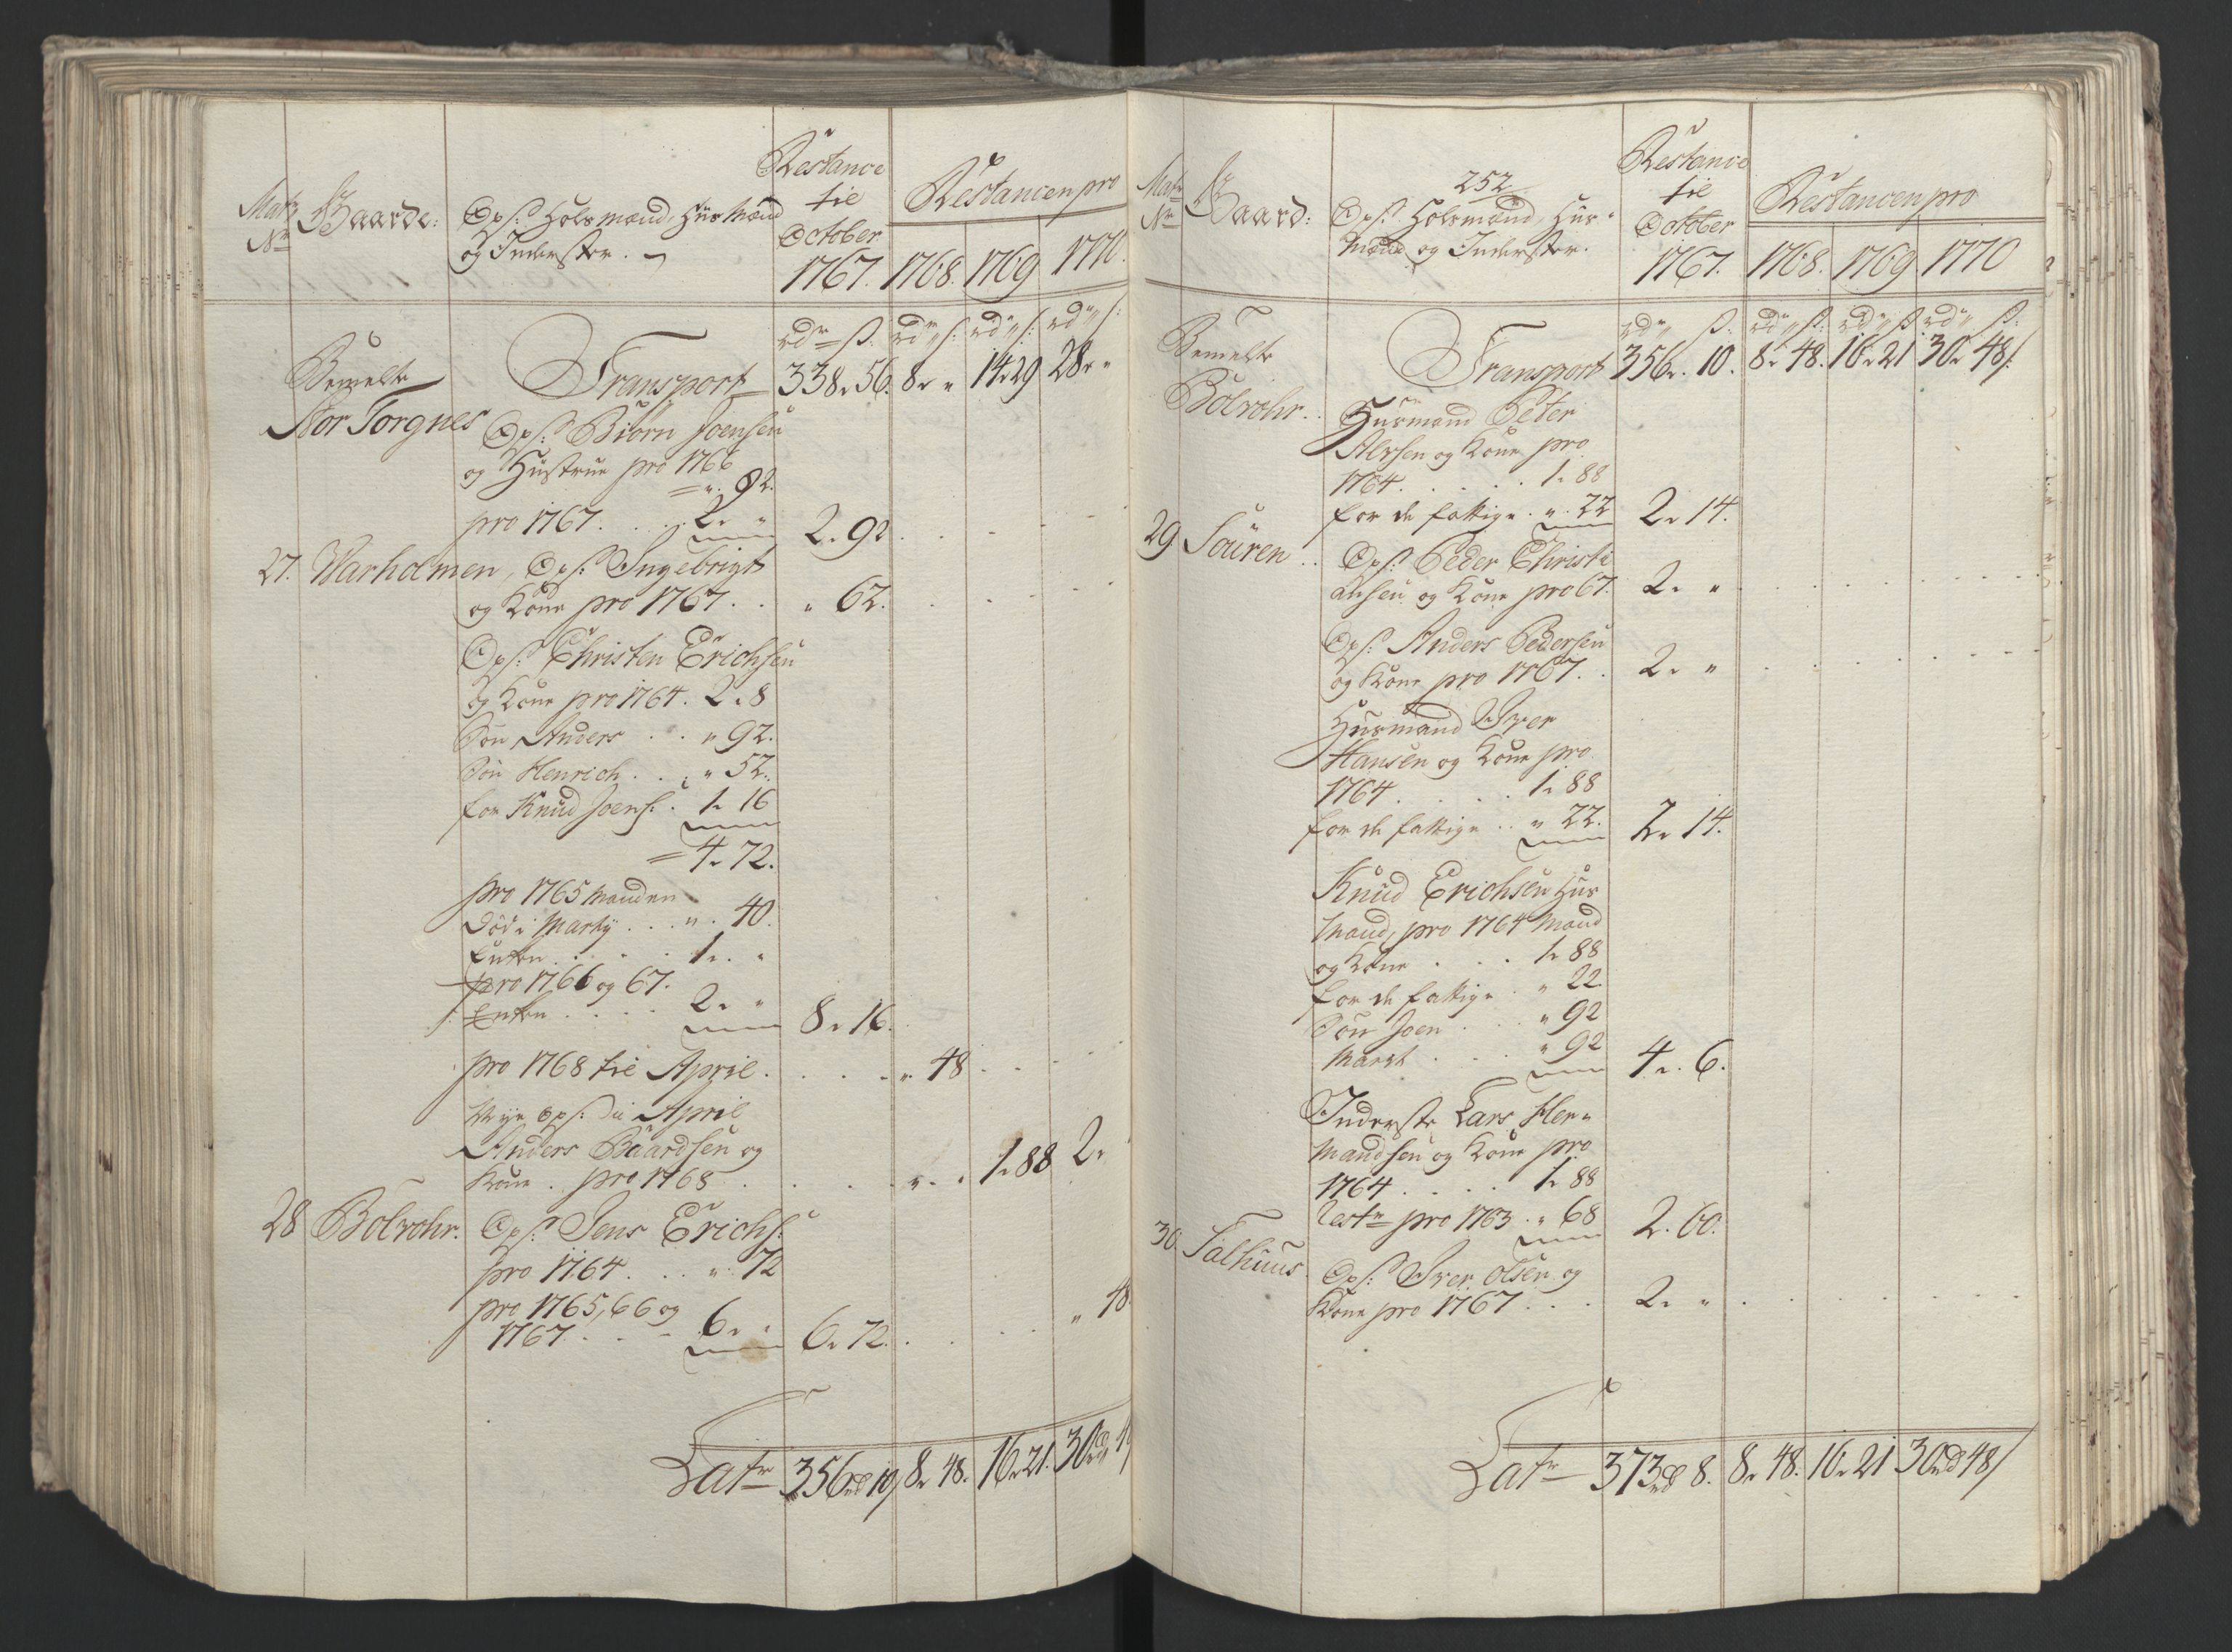 Mat: No
Gaarde:
Ops: Holsmænd, Huusmænd
og Inderster.
Restance
til
October
1767.
Restancen pro
1768. 1769 1770.
rdr ß. rdr ß: rdr ß: rdr ß:
Bemelte Transport 338. 56. 8. " 14. 29 28. "
Stor Torgnes
Ops: Biørn Joensen
og Hustrue pro 1766
". 92.
pro 1767. . . . 2. " 2. 92.
27. Warholmen, Ops: Ingebrigt
og Kone pro 1767. . " 62.
Ops: Christen Erichsen
og Kone pro 1764. 2. 8
Søn Anders . . " 92.
Søn Henrich . . " 52.
for Knud Joens: . 1. 16
4. 72.
pro 1765 Manden
død i Marty . . . " . 40.
Enken . . . . 1. "
pro 1766 og 67.
Enken . . . . 2. " 8. 16.
pro 1768 til April . . . . " 48
Nye Ops: April
Anders Baardsen og
Kone . pro 1768 . . . . ". . 1. 88 2.
28 Bolvohr. Ops: Jens Erichs:
pro 1764 . . . " 72
pro 1765, 66 og
1767 . . . 6. " 6. 72. . . . . " 48
Latr 356rd 10 8. 48. 16. 21. 30rd
252
Mat: No
Gaard:
Ops: Holsmænd, Huus-
mænd og Inderster.
Restance
til
October
1767.
Restancen pro
1768. 1769 1770
rdr ß: rdr ß: rdr ß rdr ß:
Bemelte Transport 356. 10. 8. 48. 16. 21 30. 48/.
Bolvohr.
Huusmand Peter
Alexsen og Kone pro
1764. . . . . 1. 88
for de fattige . ". 22 2. 14.
29 Souren . . Ops: Peder Christi
ansen og Kone pro 67. 2. "
Ops: Anders Pedersen
og Kone pro 1767. . 2. "
Huusmand Iver
Hansen og Kone pro
1764 . . . . 1. 88
for de fattige . . " 22. 2. 14.
Knud Erichsen Huus
Mand, pro 1764 Mand
og Kone . . . 1. 88
for de fattige . " 22
Søn Joen . . . " 92
Maret . . . " 92 4. . 6.
Inderste Lars Her-
mandsen og Kone pro
1764 . . . . 1. 88
Restr pro 1763 . " 68 2. 60.
30. Salhuus. Ops: Iver Olsen og
Kone pro 1767 . . . 2. "
Latr 373rd 8. 8. 48. 16. 21 30rd 48/